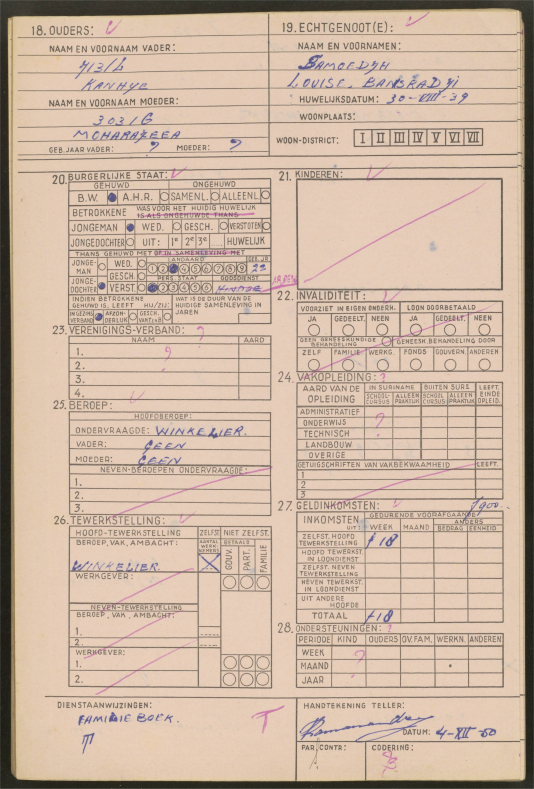 18. OUDERS:
NAAM EN VOORNAAM VADER:
713/L
KANHYE
NAAM EN VOORNAAM MOEDER:
303/G
MOHARAJEEA
GEB. JAAR VADER: ? MOEDER: ?
19. ECHTGENOOT(E):
NAAM EN VOORNAMEN:
SAMOEDJH
LOUISE. BANSRADJI
HUWELIJKSDATUM: 30-VIII-39
WOONPLAATS:
WOON-DISTRICT: I II III IV V VI VII
20. BURGERLIJKE STAAT:
GEHUWD ONGEHUWD
B.W. A.H.R. SAMENL. ALLEENL.
BETROKKENE WAS VOOR HET HUIDIG HUWELIJK
IS ALS ONGEHUWDE THANS
JONGEMAN WED. GESCH. VERSTOTEN
JONGEDOCHTER UIT: 1e 2e 3e HUWELIJK
THANS GEHUWD MET OF IN SAMENLEVING MET
JONGE-MAN WED. LANDAARD GEB. JR.
1 2 3 4 5 6 7 8 9 23
GESCH. PERS. STAAT GODSDIENST
JONGE-DOCHTER VERST. 1 2 3 4 5 6 HINDOE
INDIEN BETROKKENE GEHUWD IS, LEEFT HIJ/ZIJ: WAT IS DE DUUR VAN DE HUIDIGE SAMENLEVING IN JAREN
IN GEZINS VERBAND AFZON-DERLIJK GESCH. VAN T&B
21. KINDEREN:
22. INVALIDITEIT:
VOORZIET IN EIGEN ONDERH. LOON DOORBETAALD
JA GEDEELT. NEEN JA GEDEELT. NEEN
GEEN GENEESKUNDIGE BEHANDELING GENEESK. BEHANDELING DOOR
ZELF FAMILIE WERKG. FONDS GOUVERN. ANDEREN
23. VERENIGINGS-VERBAND: ?
NAAM AARD
1. ?
2.
3.
4.
24. VAKOPLEIDING: ?
AARD VAN DE OPLEIDING IN SURINAME BUITEN SUR§ LEEFT EINDE OPLEID.
SCHOOL-CURSUS ALLEEN PRAKTIJK SCHOOL CURSUS ALLEEN PRAKTIJK
ADMINISTRATIEF
ONDERWIJS ?
TECHNISCH
LANDBOUW
OVERIGE
GETUIGSCHRIFTEN VAN VAKBEKWAAMHEID LEEFT.
1
2
3
25. BEROEP:
HOOFDBEROEP:
ONDERVRAAGDE: WINKELIER.
VADER: GEEN
MOEDER: GEEN
NEVEN-BEROEPEN ONDERVRAAGDE:
1.
2.
3.
26. TEWERKSTELLING:
HOOFD-TEWERKSTELLING ZELFST NIET ZELFST.
BEROEP, VAK, AMBACHT: AANTAL WERK-NEMERS BETAALD
GOUV. PART. FAMILIE
WINKELIER. X
WERKGEVER:
NEVEN-TEWERKSTELLING
BEROEP, VAK, AMBACHT:
1.
2.
WERKGEVER:
1.
2.
27. GELDINKOMSTEN: f900.-
INKOMSTEN UIT GEDURENDE VOORAFGAANDE
WEEK MAAND ANDERS
BEDRAG EENHEID
ZELFST. HOOFD TEWERKSTELLING f 18
HOOFD TEWERKST. IN LOONDIENST
ZELFST. NEVEN TEWERKSTELLING
NEVEN TEWERKST. IN LOONDIENST
UIT ANDERE HOOFDE
TOTAAL f 18
28. ONDERSTEUNINGEN: ?
PERIODE KIND OUDERS OV. FAM. WERKN. ANDEREN
WEEK
MAAND ?
JAAR
DIENSTAANWIJZINGEN:
FAMILIE BOEK. T
HANDTEKENING TELLER:
DATUM: 4-XII-50
PAR. CONTR: CODERING: